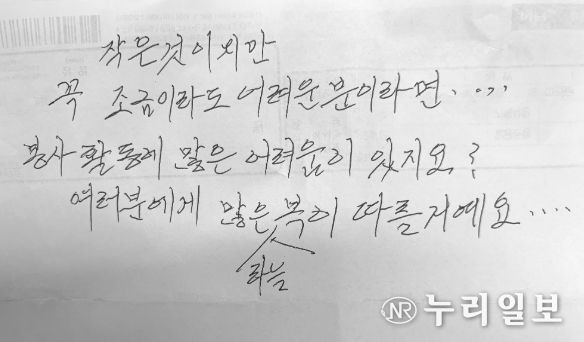 작은것이지만
꼭 조금이라도 어려운분이라면....
봉사 활동에 많은 어려움이 있지요?
여러분에게 많은 복이 따를거예요....
하늘
NR 누리일보